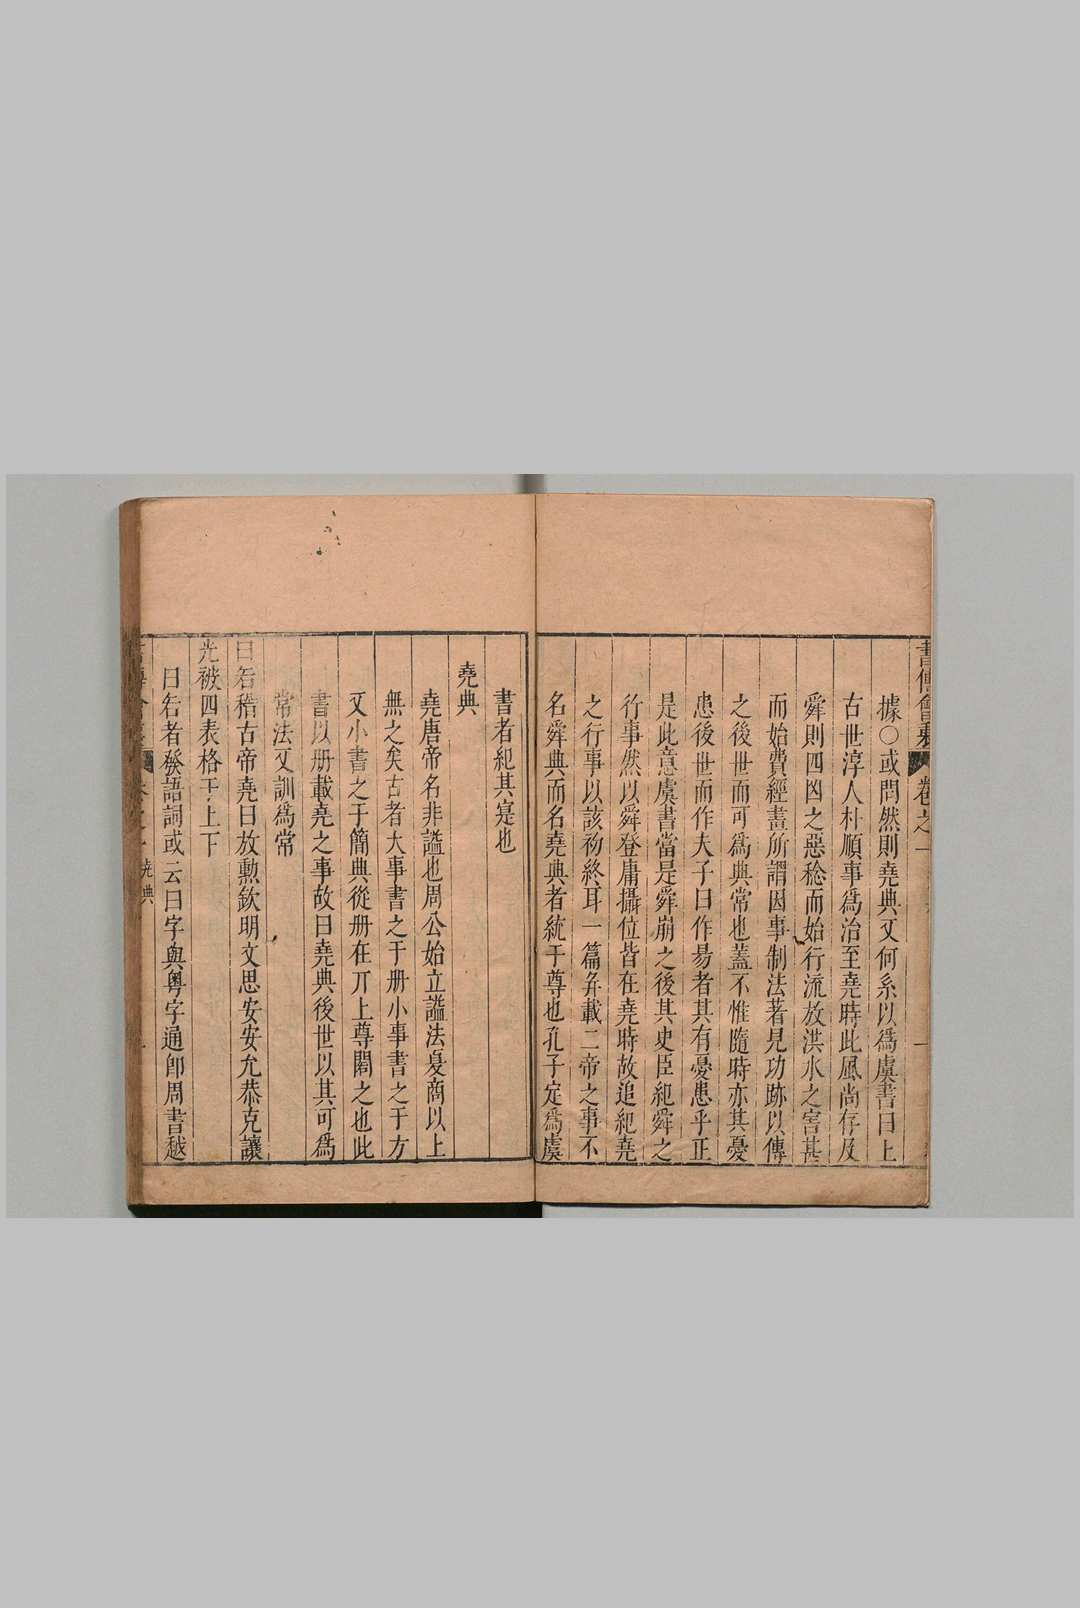 書傳會衷 卷之一 一
據○或問然則堯典又何系以爲虞書曰上
古世淳人朴順事爲治至堯時此風尚存及
舜則四凶之惡稔而始行流放洪水之害甚
而始費經畫所謂因事制法著見功跡以傳
之後世而可爲典常也蓋不惟隨時亦其憂
患後世而作夫子曰作易者其有憂患乎正
是此意虞書當是舜崩之後其史臣紀舜之
行事然以舜登庸攝位皆在堯時故追紀堯
之行事以該初終耳一篇并載二帝之事不
名舜典而名堯典者統于尊也孔子定爲虞
書者紀其寔也
堯典
堯唐帝名非謚也周公始立謚法夏商以上
無之矣古者大事書之于册小事書之于方
又小書之于簡典從册在丌上尊閣之也此
書以册載堯之事故曰堯典後世以其可爲
常法又訓爲常
曰若稽古帝堯曰放勳欽明文思安安允恭克讓
光被四表格于上下
曰若者發語詞或云曰字與粵字通卽周書越
堯典